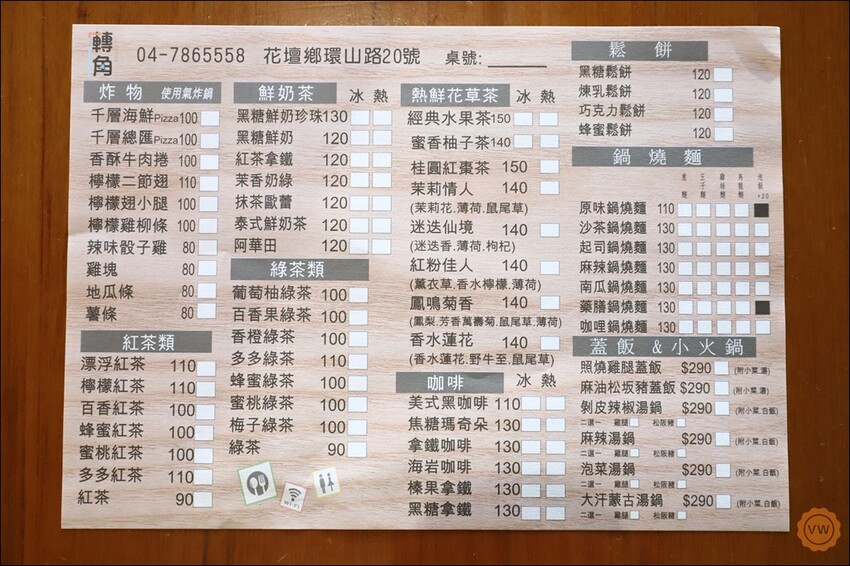 轉角
04-7865558 花壇鄉環山路20號 桌號:
炸物 使用氣炸鍋
千層海鮮Pizza100
千層總匯Pizza100
香酥牛肉捲 100
檸檬二節翅 110
檸檬翅小腿 100
檸檬雞柳條 100
辣味骰子雞 80
雞塊 80
地瓜條 80
薯條 80
紅茶類
漂浮紅茶 110
檸檬紅茶 110
百香紅茶 100
蜂蜜紅茶 100
蜜桃紅茶 100
多多紅茶 110
紅茶 90
鮮奶茶 冰 熱
黑糖鮮奶珍珠130
黑糖鮮奶 120
紅茶拿鐵 120
茉香奶綠 120
抹茶歐蕾 120
泰式鮮奶茶 120
阿華田 120
綠茶類
葡萄柚綠茶 100
百香果綠茶 100
香橙綠茶 100
多多綠茶 110
蜂蜜綠茶 100
蜜桃綠茶 100
梅子綠茶 100
綠茶 90
WI-FI
熱鮮花草茶 冰 熱
經典水果茶150
蜜香柚子茶140
桂圓紅棗茶 150
茉莉情人 140
(茉莉花.薄荷.鼠尾草)
迷迭仙境 140
(迷迭香.薄荷.枸杞)
紅粉佳人 140
(薰衣草.香水檸檬.薄荷)
鳳鳴菊香 140
(鳳梨.芳香萬壽菊.鼠尾草.薄荷)
香水蓮花 140
(香水蓮花.野牛至.鼠尾草)
咖啡 冰 熱
美式黑咖啡 110
焦糖瑪奇朵 130
拿鐵咖啡 130
海岩咖啡 130
榛果拿鐵 130
黑糖拿鐵 130
鬆餅
黑糖鬆餅 120
煉乳鬆餅 120
巧克力鬆餅 120
蜂蜜鬆餅 120
鍋燒麵
意麵 王子麵 雞絲麵 烏龍麵 +20
原味鍋燒麵 110
沙茶鍋燒麵
起司鍋燒麵
麻辣鍋燒麵
南瓜鍋燒麵
藥膳鍋燒麵
咖哩鍋燒麵
蓋飯 & 小火鍋
照燒雞腿蓋飯 $290 (附小菜.湯)
麻油松坂豬蓋飯 $290 (附小菜.湯)
剝皮辣椒湯鍋 $290 (附小菜.白飯)
二選一 雞腿 松阪豬
麻辣湯鍋 $290 (附小菜.白飯)
二選一 雞腿 松阪豬
泡菜湯鍋 $290 (附小菜.白飯)
二選一 雞腿 松阪豬
大汗蒙古湯鍋 $290 (附小菜.白飯)
二選一 雞腿 松阪豬
VW